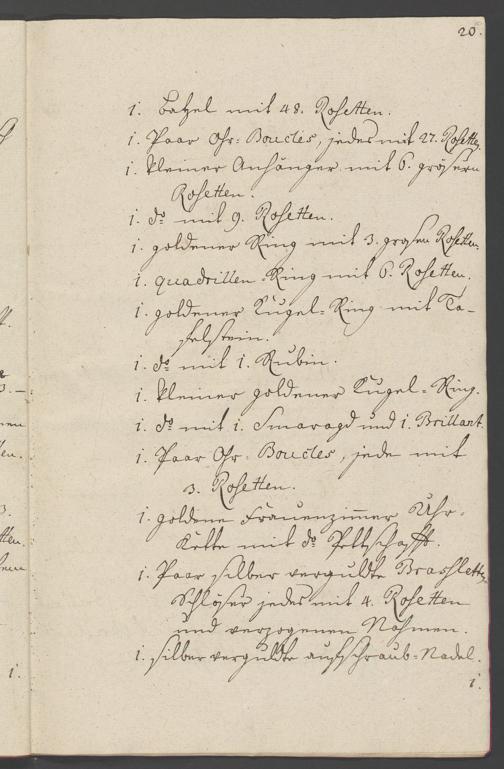 20.
1. Batzel mit 48. Rosetten.
1. Paar Ohr: Boucles, jedes mit 27. Rosetten
1. kleiner Anhänger mit 6. grösern
Rosetten.
1. do mit 9. Rosetten.
1. goldener Ring mit 3. grosen Rosetten.
1. quadrillen-Ring mit 6. Rosetten.
1. goldener Kugel-Ring mit Ta-
felstein.
1. do mit 1. Rubin.
1. kleiner goldener Kugel-Ring.
1. do mit 1. Smaragd und 1. Brillant.
1. Paar Ohr-Boucles, jede mit
3. Rosetten.
1. goldene Frauenzimmer Uhr-
Kette mit do Pettschafft.
1. Paar silber verguldte Brashletten
Schlößer jedes mit 4. Rosetten
und verzogenen Nahmen.
1. silber verguldte aufschraub-Nadel.
1.